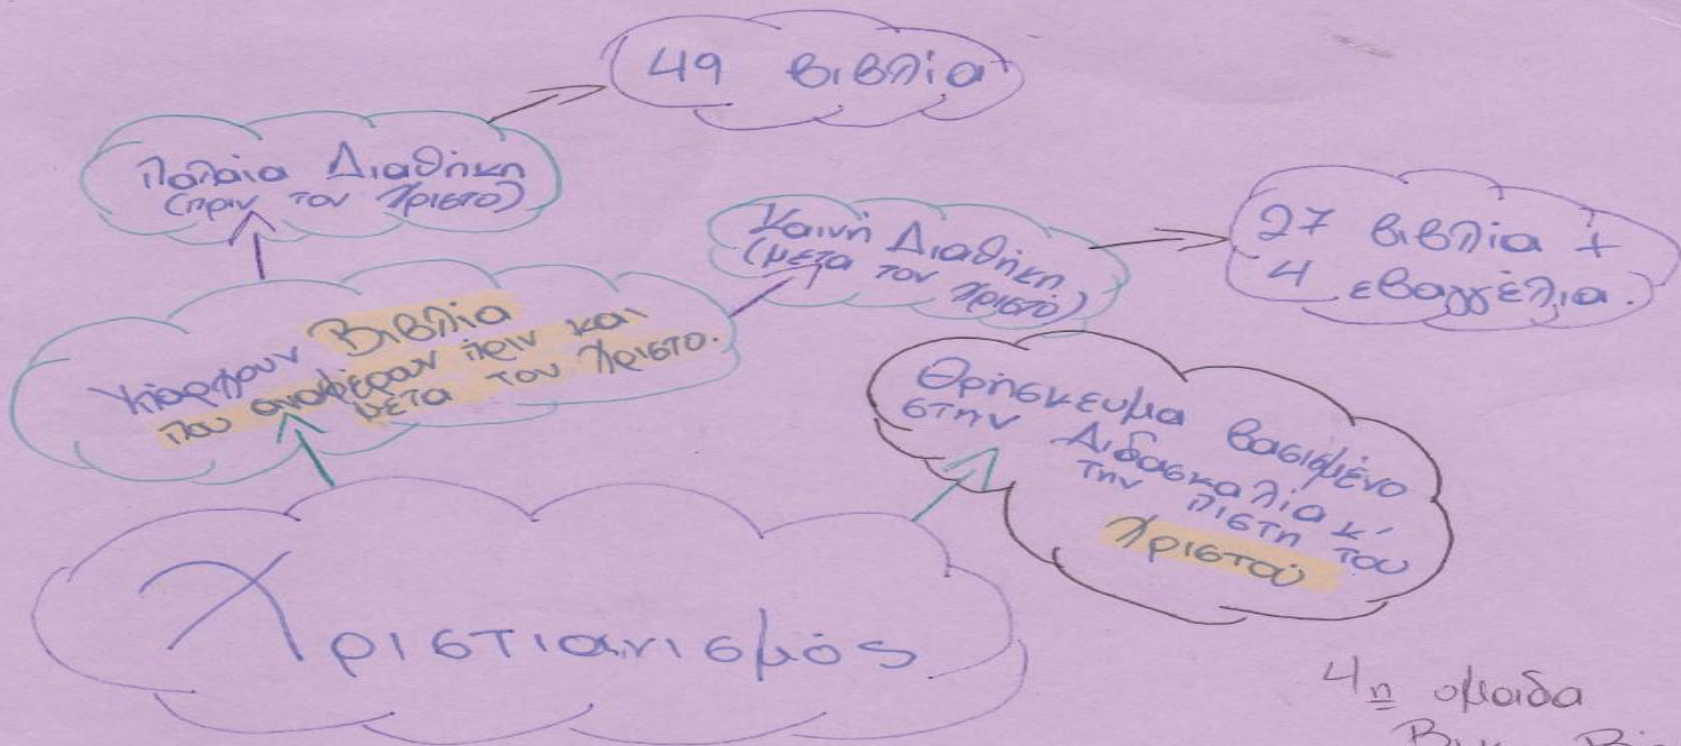 49 βιβλία
Παλαιά Διαθήκη
(πριν τον Χριστό)
Καινή Διαθήκη
(μετα τον Χριστό)
27 βιβλία +
4 εβαγγέλια.
Υπάρχουν Βιβλία
που αναφέραν πριν και
μετα τον Χριστο.
Θρήσκευμα βασισμένο
στην Διδασκαλία κ'
την πιστη του
Χριστού
Χριστιανισμός
4η ομαδα